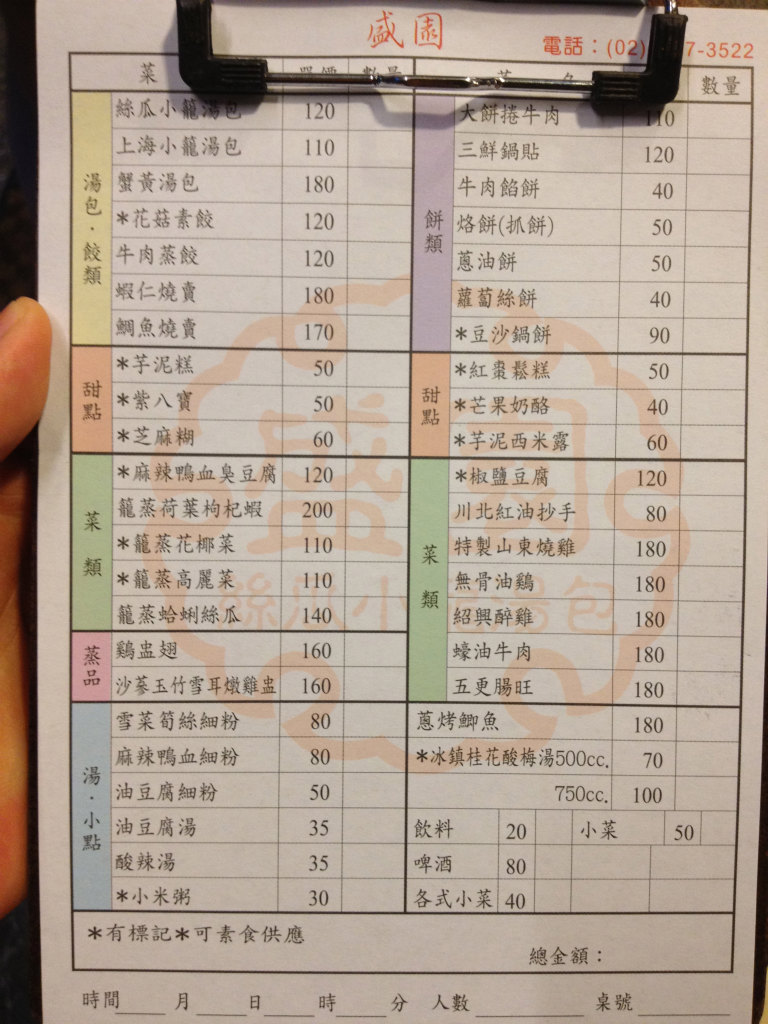 盛園
電話：(02) 7-3522
菜 單價 數量
菜 名 數量
湯包·餃類
絲瓜小籠湯包 120
上海小籠湯包 110
蟹黃湯包 180
*花菇素餃 120
牛肉蒸餃 120
蝦仁燒賣 180
鯛魚燒賣 170
甜點
*芋泥糕 50
*紫八寶 50
*芝麻糊 60
菜類
*麻辣鴨血臭豆腐 120
籠蒸荷葉枸杞蝦 200
*籠蒸花椰菜 110
*籠蒸高麗菜 110
籠蒸蛤蜊絲瓜 140
蒸品
鷄盅翅 160
沙蔘玉竹雪耳燉雞盅 160
湯·小點
雪菜筍絲細粉 80
麻辣鴨血細粉 80
油豆腐細粉 50
油豆腐湯 35
酸辣湯 35
*小米粥 30
餅類
大餅捲牛肉 110
三鮮鍋貼 120
牛肉餡餅 40
烙餅(抓餅) 50
蔥油餅 50
蘿蔔絲餅 40
*豆沙鍋餅 90
甜點
*紅棗鬆糕 50
*芒果奶酪 40
*芋泥西米露 60
菜類
*椒鹽豆腐 120
川北紅油抄手 80
特製山東燒雞 180
無骨油鷄 180
紹興醉雞 180
蠔油牛肉 180
五更腸旺 180
蔥烤鯽魚 180
*冰鎮桂花酸梅湯500cc. 70
750cc. 100
飲料 20 小菜 50
啤酒 80
各式小菜 40
*有標記*可素食供應
總金額：
時間 月 日 時 分 人數 桌號